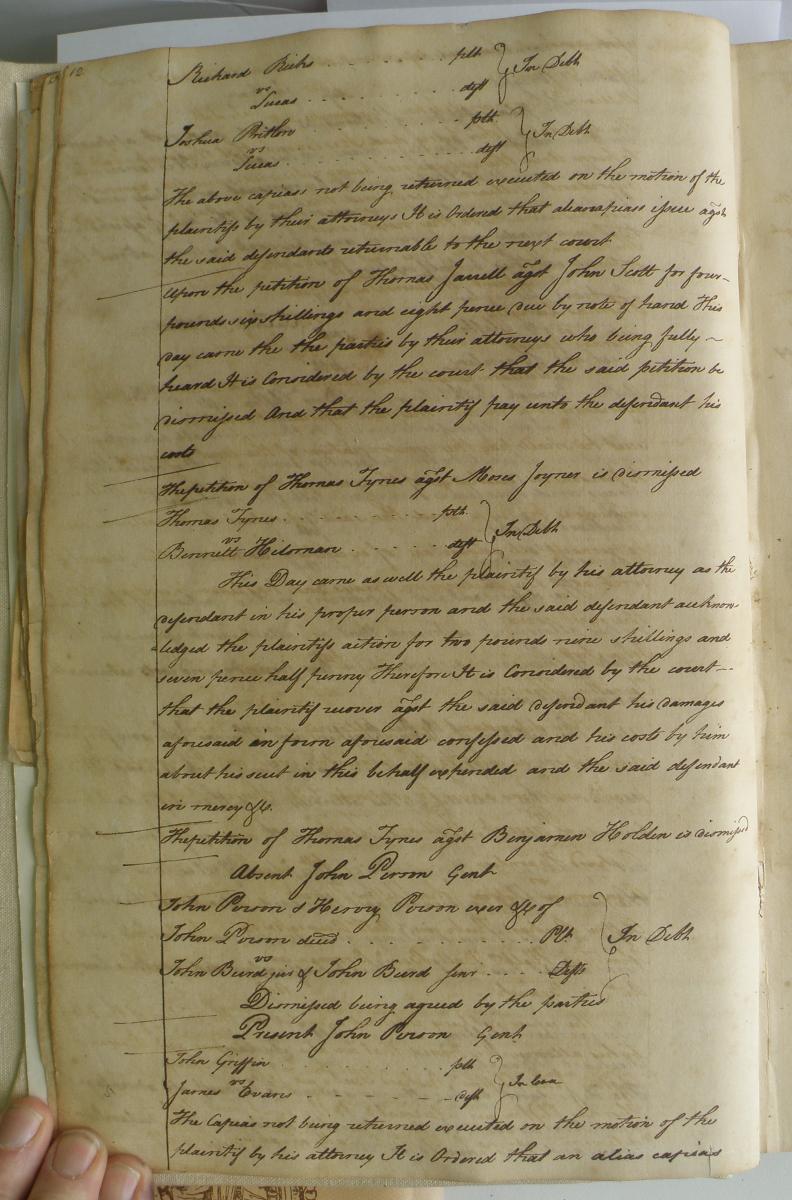 12
Richard Ricks . . . . . . . . . plt } In Debt
vs
Lucas . . . . . . . . . . . deft
Joshua Pritlow . . . . . . . . . plt } In Debt
vs
Lucas . . . . . . . . . . . deft
The above capiass not being returned executed on the motion of the
plaintifs by their attorneys It is Ordered that issue agst
the said defendants returnable to the next court
Upon the petition of Thomas Jarrell agst John Scott for four
pounds six shillings and eight pence due by note of hand This
day came the the parties by their attorneys who being fully
heard It is Considered by the court that the said petition be
dismissed And that the plaintif pay unto the defendant his
costs
The petition of Thomas Tynes agst Moses Joyner is dismissed
Thomas Tynes . . . . . . . . . plt } In Debt
vs
Bennett Hilsman . . . . . . deft
This Day came as well the plaintif by his attorney as the
defendant in his proper person and the said defendant acknow-
ledged the plaintifs action for two pounds nine shillings and
seven pence half penny Therefore It is Considered by the court
that the plaintif recover agst the said defendant his damages
aforesaid in form aforesaid confessed and his costs by him
about his suit in this behalf expended and the said defendant
in mercy &c.
The petition of Thomas Tynes agst Benjamen Holden is dismissed
Absent John Person Gent
John Person & Person exer &c of
John Person decd . . . . . . . . . Plt } In Debt
vs
John Burd junr & John Burd Senr . . . . Defts
Dismissed being agreed by the parties
Present John Person Gent
John Griffin . . . . . . . . . plt } In Case
vs
James Evans . . . . . . . . deft
The Capias not being returned executed on the motion of the
plaintif by his attorney It is Ordered that an alias capias